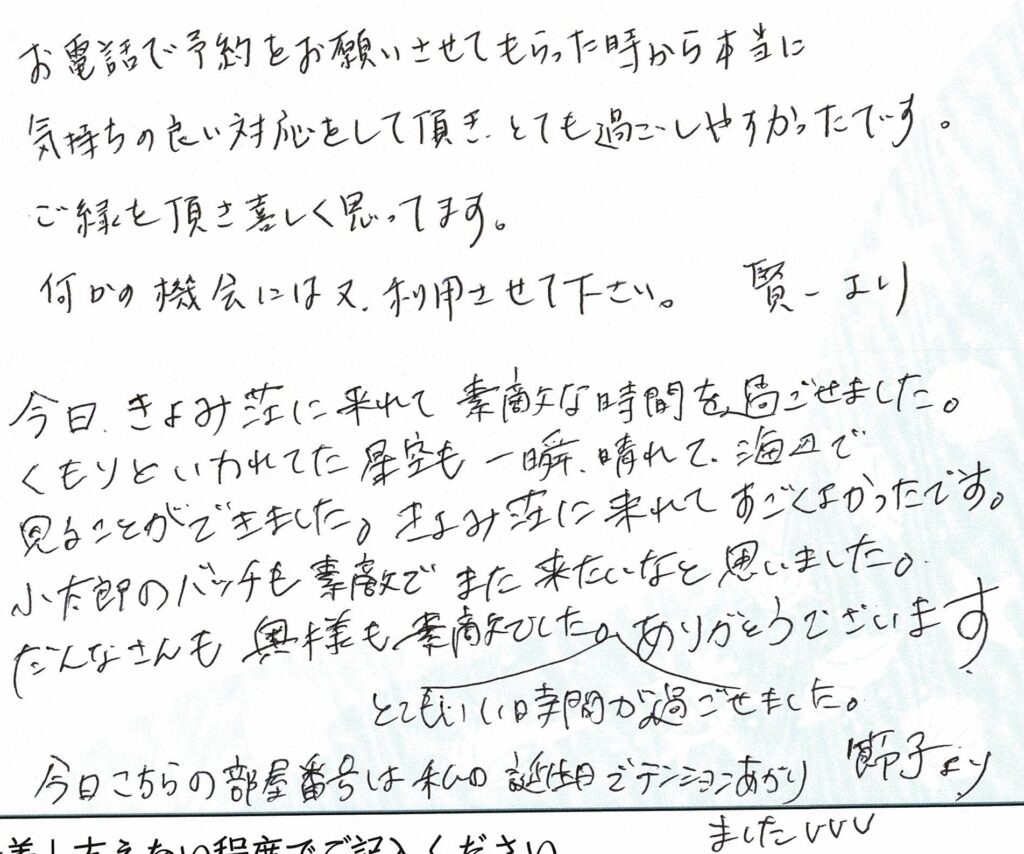 お電話で予約をお願いさせてもらった時から本当に
気持ちの良い対応をして頂き、とても過ごしやすかったです。
ご縁を頂き喜しく思ってます。
何かの機会には又、利用させて下さい。 賢一より
今日、きよみ荘に来れて素敵な時間を過ごせました。
くもりといわれてた星空も一瞬、晴れて、海辺で
見ることができました。きよみ荘に来れてすごくよかったです。
小太郎のバッチも素敵でまた来たいなと思いました。
だんなさんも奥様も素敵でした。ありがとうございます
とてもいい時間が過ごせました。
今日こちらの部屋番号は私の誕生日でテンションあがり
節子より
ましたVVV
差し支えない程度でご記入ください